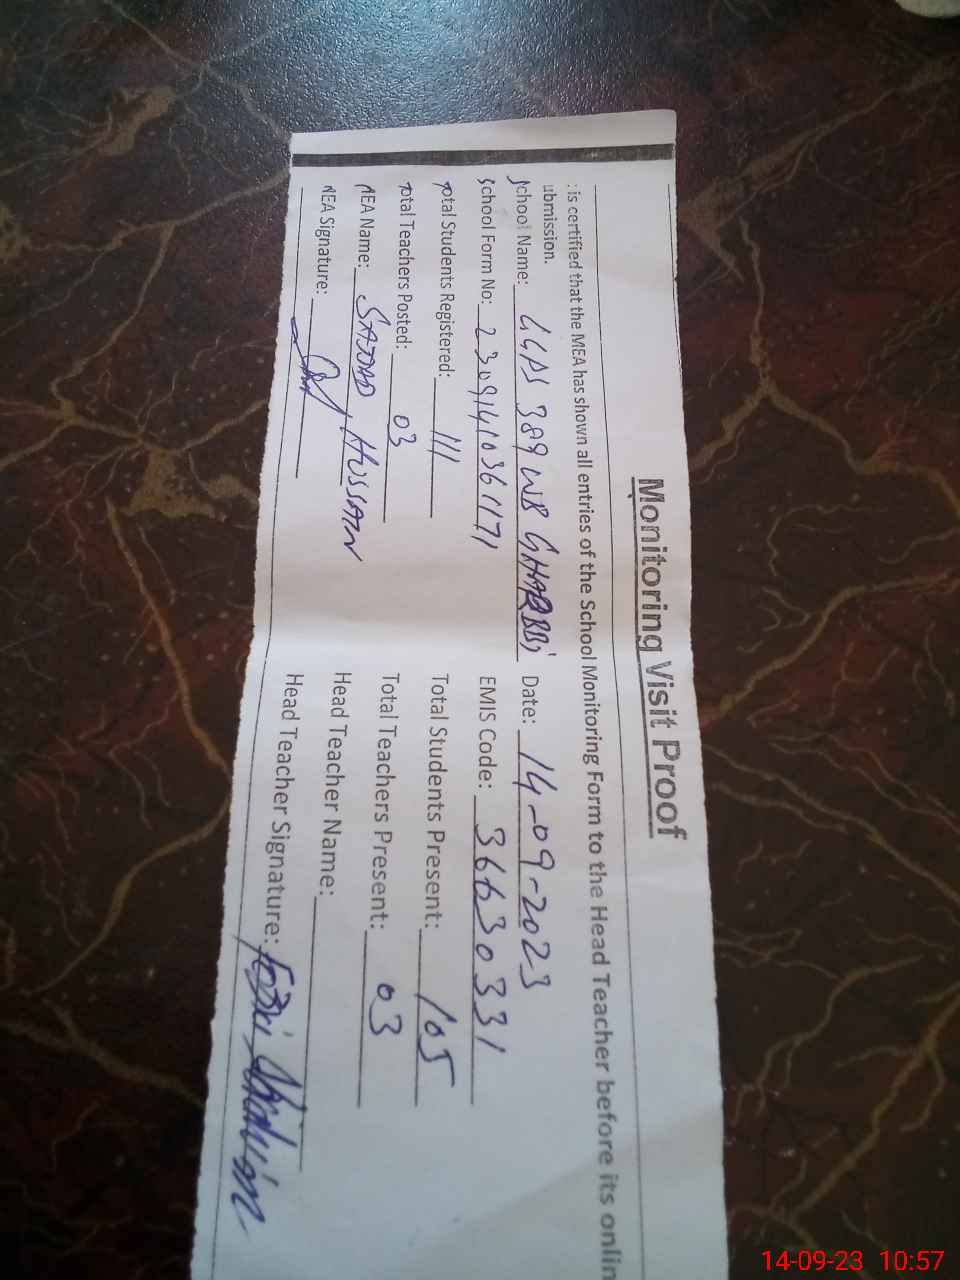 Monitoring Visit Proof
: is certified that the MEA has shown all entries of the School Monitoring Form to the Head Teacher before its onlin
ubmission.
School Name: GGPS 389 WB GHARBBi Date: 14-09-2023
School Form No: 23091410361171 EMIS Code: 36630331
Total Students Registered: 111 Total Students Present: 105
Total Teachers Posted: 03 Total Teachers Present: 03
MEA Name: SAJJAD HUSSAIN Head Teacher Name:
MEA Signature: Head Teacher Signature:
14-09-23 10:57